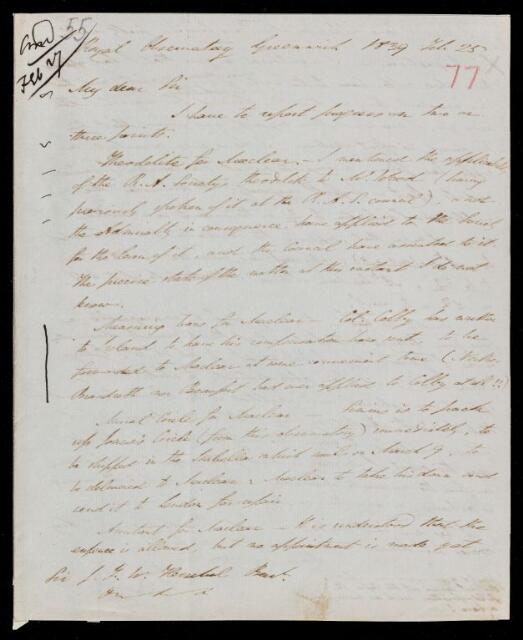 Ansd
Feb 27
55
Royal Observatory Greenwich 1839 Feb. 25
77
My dear Sir
I have to report progress on two or
three points.
Theodolite for Maclear. – I mentioned the applicability
of the R. A. Society's theodolite to Mr Wood (having
previously spoken of it at the R. A. S. council), and
the Admiralty in consequence have applied to the Society
for the loan of it, and the Council have consented to it.
The precise state of the matter at this instant I do not
know.
Measuring bars for Maclear – Col. Colby has written
to Ireland to have his compensation bars sent, to be
forwarded to Maclear at some convenient time (Neither
nor Beaufort had ever applied to Colby at all!!)
Mural Circle for Maclear – Simms is to pack
up Jones's Circle (from this observatory) immediately, to
be shipped in the which sails on March 7, to
be delivered to Maclear: Maclear to take his down and
send it to London for repair
Assistant for Maclear – It is understood that the
expence is allowed, but no appointment is made yet
Sir J. F. W. Herschel Bart.